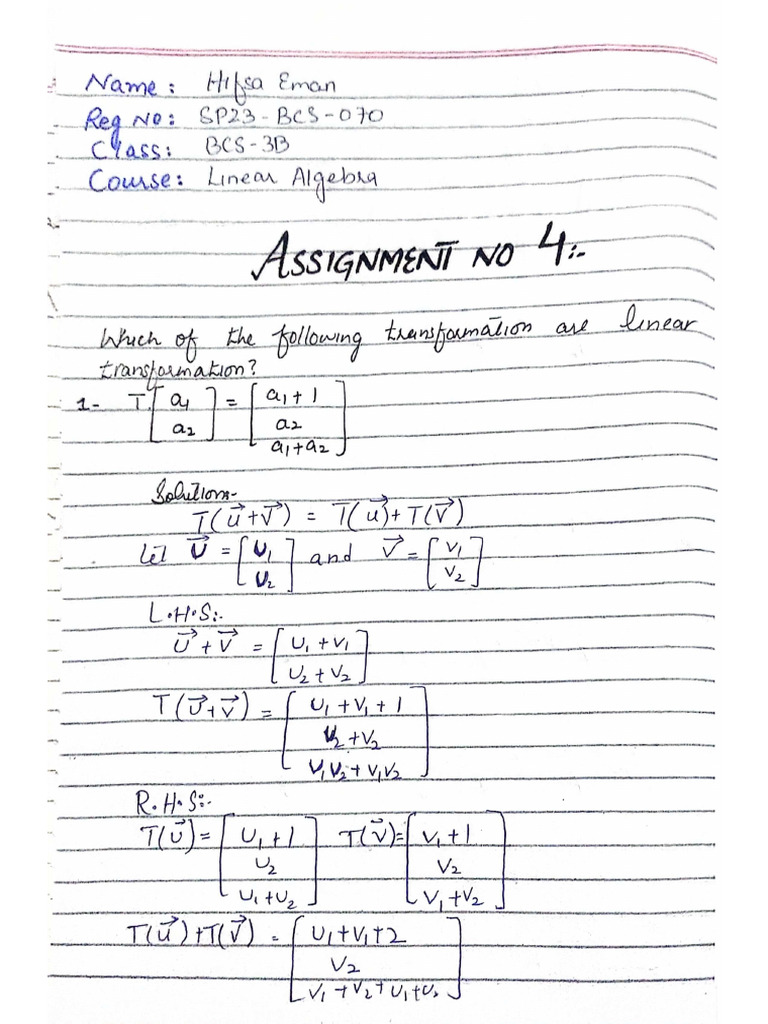 Name: Hifsa Eman
Reg No: SP23-BCS-070
Class: BCS-3B
Course: Linear Algebra
ASSIGNMENT NO 4:-
Which of the following transformation are linear
transformation?
1- T[a₁ a₂] = [a₁+1
a₂
a₁+a₂]
Solution:-
T(u⃗+v⃗) = T(u⃗)+T(v⃗)
Let u⃗ = [u₁ u₂] and v⃗ = [v₁ v₂]
L.H.S:-
u⃗+v⃗ = [u₁+v₁
u₂+v₂]
T(u⃗+v⃗) = [u₁+v₁+1
u₂+v₂
u₁u₂+v₁v₂]
R.H.S:-
T(u⃗) = [u₁+1 u₂ u₁+u₂] T(v⃗) = [v₁+1 v₂ v₁+v₂]
T(u⃗)+T(v⃗) = [u₁+v₁+2
v₂
v₁+v₂+u₁+u₂]